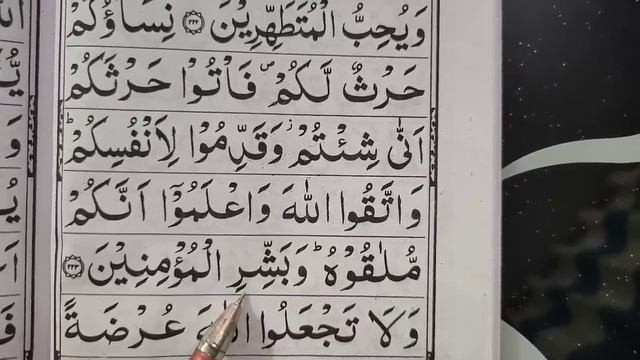 وَيُحِبُّ الْمُتَطَهِّرِيْنَ ﴿۲۲۲﴾ نِسَآؤُكُمْ
حَرْثٌ لَّكُمْ ۪ فَاْتُوْا حَرْثَكُمْ
اَنّٰى شِئْتُمْ ؗ وَقَدِّمُوْا لِاَنْفُسِكُمْ ؕ
وَاتَّقُوا اللّٰهَ وَاعْلَمُوْۤا اَنَّكُمْ
مُّلٰقُوْهُ ؕ وَبَشِّرِ الْمُؤْمِنِيْنَ ﴿۲۲۳﴾
وَلَا تَجْعَلُوا اللّٰهَ عُرْضَةً